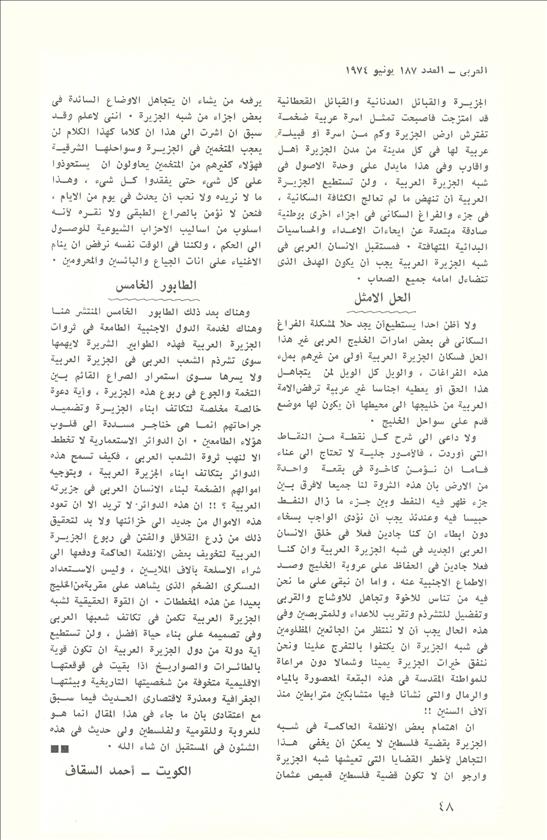 العربى – العدد ١٨٧ يونيو ١٩٧٤
الجزيرة والقبائل العدنانية والقبائل القحطانية
قد امتزجت فأصبحت تمثل اسرة عربية ضخمة
تفترش ارض الجزيرة وكم من اسرة أو قبيلة
عربية لها فى كل مدينة من مدن الجزيرة أهل
واقارب وفى هذا مايدل على وحدة الاصول فى
شبه الجزيرة العربية ، ولن تستطيع الجزيرة
العربية أن تنهض ما لم تعالج الكثافة السكانية ،
فى جزء والفراغ السكانى فى اجزاء اخرى بوطنية
صادقة مبتعدة عن ايحاءات الاعداء والحساسيات
البدائية المتهافتة . فمستقبل الانسان العربى فى
شبه الجزيرة العربية يجب أن يكون الهدف الذى
تتضاءل امامه جميع الصعاب .
الحل الامثل
ولا أظن احدا يستطيع أن يجد حلا لمشكلة الفراغ
السكانى فى بعض امارات الخليج العربى غير هذا
الحل فسكان الجزيرة العربية أولى من غيرهم بملء
هذه الفراغات ، والويل كل الويل لمن يتجاهل
هذا الحق أو يعطيه اجناسا غير عربية ترفض الامة
العربية من خليجها الى محيطها أن يكون لها موضع
قدم على سواحل الخليج .
ولا داعى الى شرح كل نقطة من النقاط
التى أوردت ، فالأمور جلية لا تحتاج الى عناء
فاما ان نؤمن كاخوة فى بقعة واحدة
من الارض بأن هذه الثروة لنا جميعا لافرق بين
جزء ظهر فيه النفط وبين جزء ما زال النفط
حبيسا فيه وعندئذ يجب أن نؤدى الواجب بسخاء
دون ابطاء ان كنا جادين فعلا فى خلق الانسان
العربى الجديد فى شبه الجزيرة العربية وان كنا
فعلا جادين فى الحفاظ على عروبة الخليج وصد
الاطماع الاجنبية عنه ، واما ان نبقى على ما نحن
فيه من تناس للاخوة وتجاهل للاوشاج والقربى
وتفضيل للتشرذم وتقريب للاعداء وللمتربصين وفى
هذه الحال يجب أن لا ننتظر من الجائعين المظلومين
فى شبه الجزيرة ان يكتفوا بالتفرج علينا ونحن
ننفق خيرات الجزيرة يمينا وشمالا دون مراعاة
للمواطنة المقدسة فى هذه البقعة المحصورة بالمياه
والرمال والتى نشأنا فيها متشابكين مترابطين منذ
آلاف السنين !!
ان اهتمام بعض الانظمة الحاكمة فى شبه
الجزيرة بقضية فلسطين لا يمكن أن يخفى هذا
التجاهل لأخطر القضايا التى تعيشها شبه الجزيرة
وارجو ان لا تكون قضية فلسطين قميص عثمان
يرفعه من يشاء ان يتجاهل الاوضاع السائدة فى
بعض اجزاء من شبه الجزيرة . اننى لاعلم وقد
سبق ان اشرت الى هذا ان كلاما كهذا الكلام لن
يعجب المتخمين فى الجزيرة وسواحلها الشرقية
فهؤلاء كغيرهم من المتخمين يحاولون ان يستحوذوا
على كل شىء حتى يفقدوا كل شىء ، وهذا
ما لا نريده ولا نحب أن يحدث فى يوم من الايام ،
فنحن لا نؤمن بالصراع الطبقى ولا نقره لأنه
اسلوب من اساليب الاحزاب الشيوعية للوصول
الى الحكم ، ولكننا فى الوقت نفسه نرفض ان ينام
الاغنياء على انات الجياع والبائسين والمحرومين .
الطابور الخامس
وهناك بعد ذلك الطابور الخامس المنتشر هنا
وهناك لخدمة الدول الاجنبية الطامعة فى ثروات
الجزيرة العربية فهذه الطوابير الشريرة لايهمها
سوى تشرذم الشعب العربى فى الجزيرة العربية
ولا يسرها سوى استمرار الصراع القائم بين
التخمة والجوع فى ربوع هذه الجزيرة ، وأية دعوة
خالصة مخلصة لتكاتف ابناء الجزيرة وتضميد
جراحاتهم انما هى خناجر مسددة الى قلوب
هؤلاء الطامعين . ان الدوائر الاستعمارية لا تخطط
الا لنهب ثروة الشعب العربى ، فكيف تسمح هذه
الدوائر بتكاتف ابناء الجزيرة العربية ، وبتوجيه
اموالهم الضخمة لبناء الانسان العربى فى جزيرته
العربية ؟ !! ان هذه الدوائر لا تريد الا ان تعود
هذه الاموال من جديد الى خزائنها ولا بد لتحقيق
ذلك من زرع القلاقل والفتن فى ربوع الجزيرة
العربية لتخويف بعض الانظمة الحاكمة ودفعها الى
شراء الاسلحة بآلاف الملايين ، وليس الاستعداد
العسكرى الضخم الذى يشاهد على مقربة من الخليج
بعيدا عن هذه المخططات . ان القوة الحقيقية لشبه
الجزيرة العربية تكمن فى تكاتف شعبها العربى
وفى تصميمه على بناء حياة أفضل ، ولن تستطيع
أية دولة من دول الجزيرة العربية ان تكون قوية
بالطائرات والصواريخ اذا بقيت فى قوقعتها
الاقليمية متخوفة من شخصيتها التاريخية وبيئتها
الجغرافية ومعذرة لاقتصارى الحديث فيما سبق
مع اعتقادى بأن ما جاء فى هذا المقال انما هو
للعروبة وللقومية ولفلسطين ولى حديث فى هذه
الشئون فى المستقبل ان شاء الله .
الكويت – أحمد السقاف
٤٨